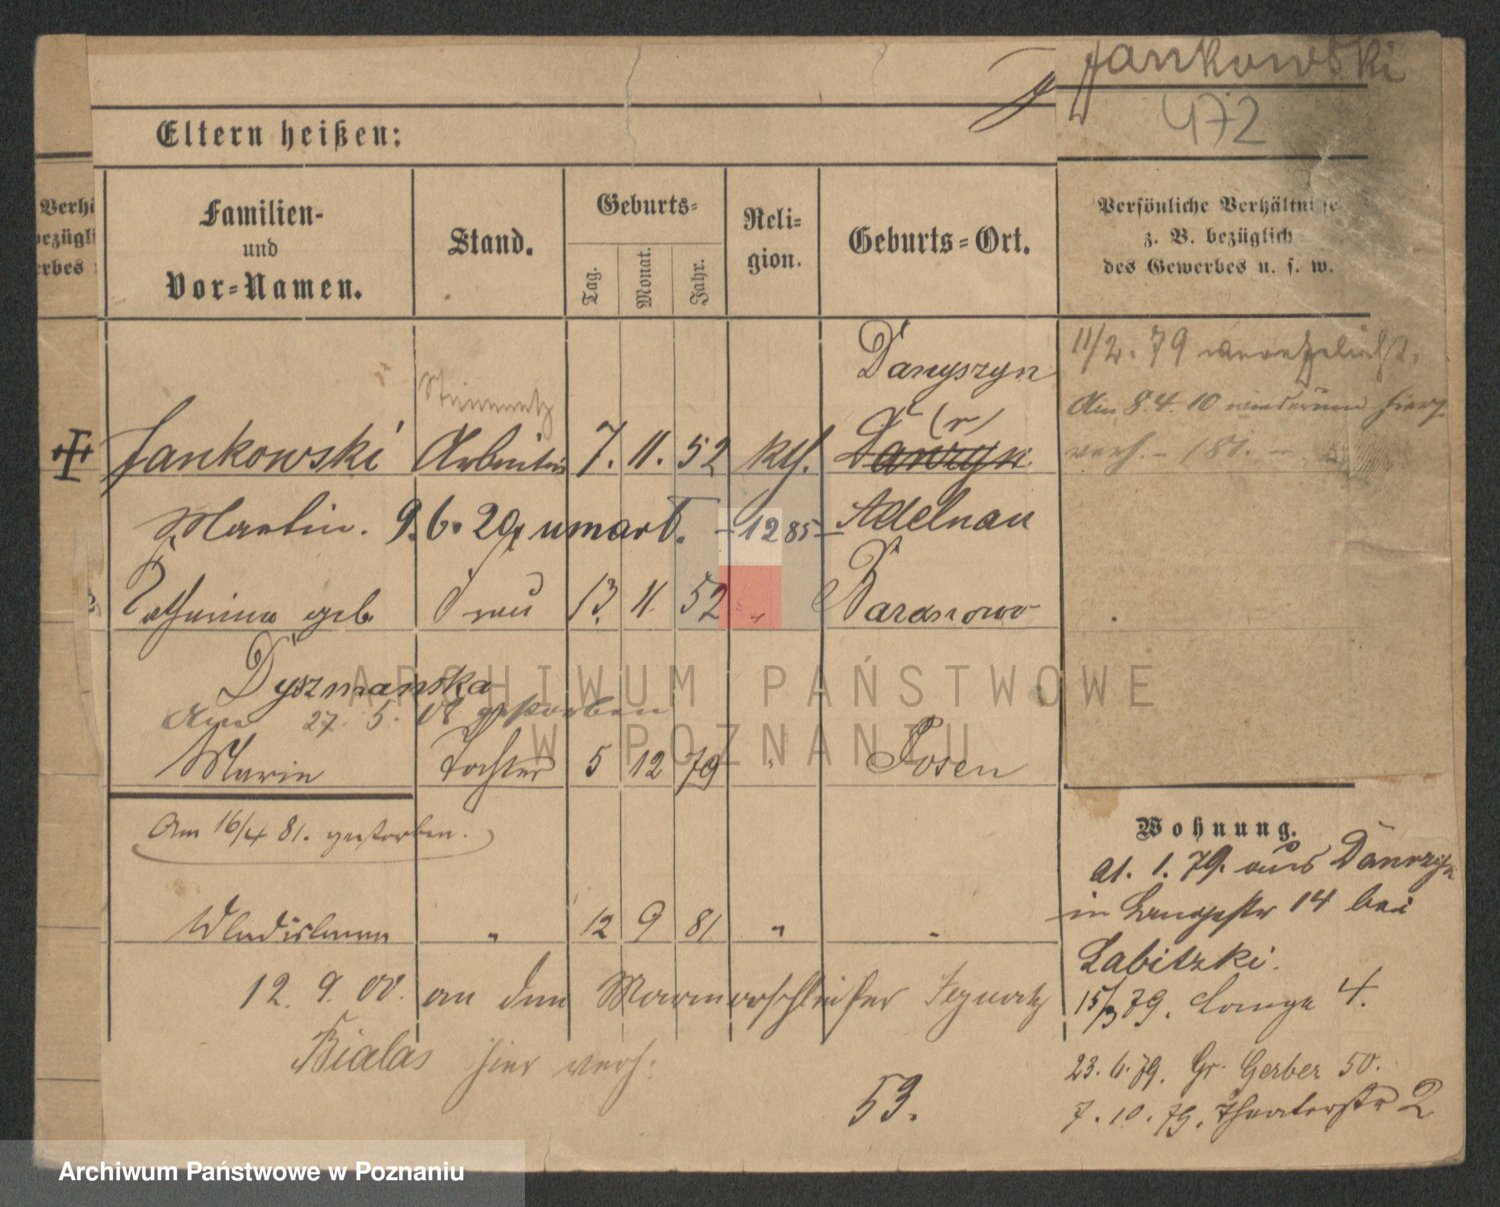 Jankowski
472
Eltern heißen:
Verhä
bezügli
erbes
Familien-
und
Vor-Namen.
Stand.
Geburts-
Tag.
Monat.
Jahr.
Reli-
gion.
Geburts-Ort.
Persönliche Verhältnisse
z. B. bezüglich
des Gewerbes u. s. w.
11/2. 79 verehelicht.
Am 8.4.10 wiederum hier
verh. - 181. -
Danyszyn
Steinmetz
(r)
Jankowski Arbeiter 7. 11. 52 kth. Danzyn
Martin. 9. 6. 20 -1285- Adelnau
Catharina geb. Frau 13. 11. 52 " Baranowo
Dyszmanska
Am 27. 5. 08 gestorben
Marie Tochter 5 12 79 " Posen
Am 16/4 81. gestorben.
Wladislawa " 12 9 81 " "
12. 9. 00. an den Marmorschleifer Ignatz
Bialas hier verh.
53.
Wohnung.
01. 1. 79. aus Danrzyn
in Langestr 14 bei
Labitzki.
15/3 79. Lange 4.
23. 6. 79. Gr. Gerber 50.
7. 10. 79. Theaterstr 2
ARCHIWUM PAŃSTWOWE
W POZNANIU
Archiwum Państwowe w Poznaniu